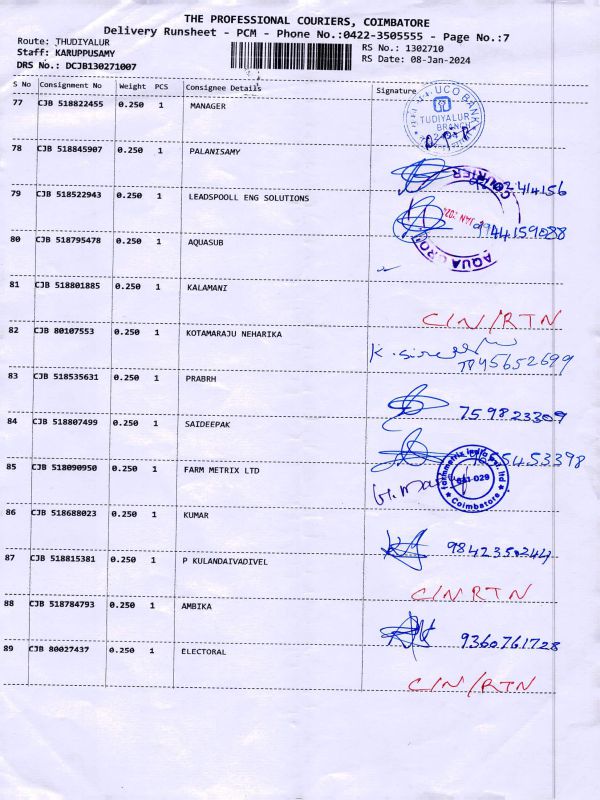 THE PROFESSIONAL COURIERS, COIMBATORE
Delivery Runsheet - PCM - Phone No.:0422-3505555 - Page No.:7
Route: THUDIYALUR
RS No.: 1302710
Staff: KARUPPUSAMY
RS Date: 08-Jan-2024
DRS No.: DCJB130271007
S No Consignment No Weight PCS Consignee Details Signature
77 CJB 518822455 0.250 1 MANAGER
UCO BANK
TUDIYALUR
BRANCH
78 CJB 518845907 0.250 1 PALANISAMY
79 CJB 518522943 0.250 1 LEADSPOOLL ENG SOLUTIONS
COURIER
9944159088
80 CJB 518795478 0.250 1 AQUASUB
AQUA
81 CJB 518801885 0.250 1 KALAMANI
C/N/RTN
82 CJB 80107553 0.250 1 KOTAMARAJU NEHARIKA
7845652699
83 CJB 518535631 0.250 1 PRABRH
759823309
84 CJB 518807499 0.250 1 SAIDEEPAK
85 CJB 518090950 0.250 1 FARM METRIX LTD
farmmetrix india pvt ltd
641 029
Coimbatore
86 CJB 518688023 0.250 1 KUMAR
9842350244
87 CJB 518815381 0.250 1 P KULANDAIVADIVEL
C/N RTN
88 CJB 518784793 0.250 1 AMBIKA
9360761728
89 CJB 80027437 0.250 1 ELECTORAL
C/N/RTN